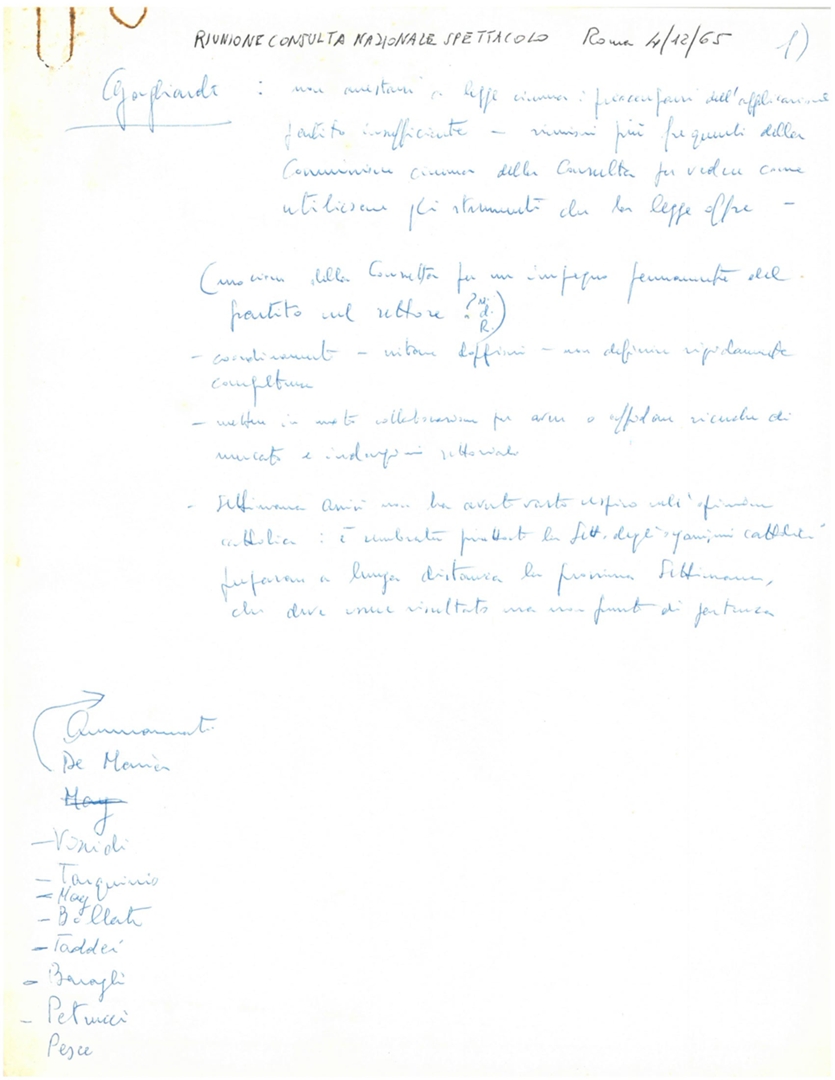 RIUNIONE CONSULTA NAZIONALE SPETTACOLO Roma 4/12/65 1)
Gagliardi : non arrestarsi a legge cinema : preoccuparsi dell'applicazione
partito insufficiente - riunioni più frequenti della
Commissione cinema della Consulta per vedere come
utilizzare gli strumenti che la legge offre -
della Consulta per un impegno permanente del
partito nel settore ? N.d.R.)
- coordinamento - evitare - non definire rigidamente
competenze
- mettere in moto collaborazioni per avere o affidare ricerche di
mercato e indagini settoriali
- Settimana Assisi non ha avuto vasto respiro nell'opinione
cattolica : è sembrata piuttosto la Sett. degli organismi cattolici
preparare a lunga distanza la prossima Settimana,
che deve essere risultato ma non punto di partenza
Ammannati
De Maria
May
- Vonidi
- Tarquinio
- May
- Bollati
- Taddei
- Baragli
- Petrucci
Pesce